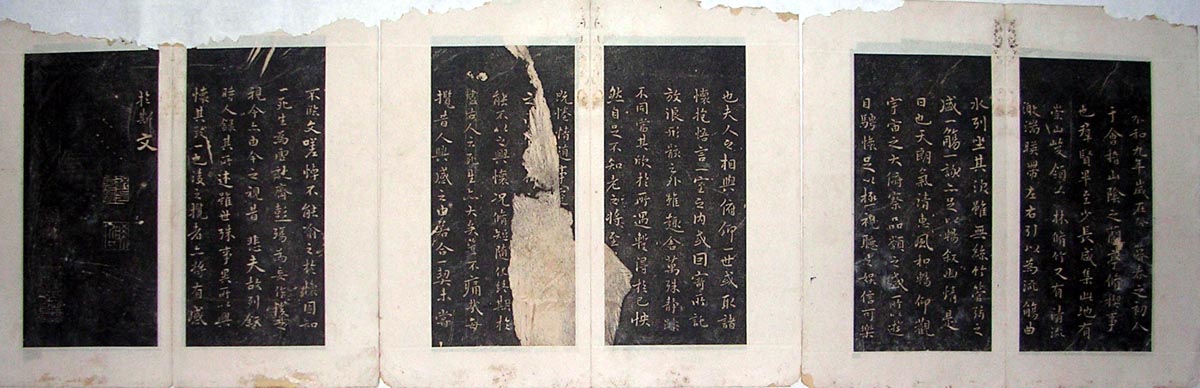 永和九年歲在癸丑暮春之初會
于會稽山陰之蘭亭脩稧事
也羣賢畢至少長咸集此地有
崇山峻領茂林脩竹又有清流
激湍暎帶左右引以為流觴曲
水列坐其次雖無絲竹管弦之
盛一觴一詠亦足以暢叙幽情是
日也天朗氣清惠風和暢仰觀
宇宙之大俯察品類之盛所以遊
目騁懷足以極視聽之娛信可樂
也夫人之相與俯仰一世或取諸
懷抱悟言一室之內或因寄所託
放浪形骸之外雖趣舍萬殊靜躁
不同當其欣於所遇暫得於己怏
然自足不知老之將至
既惓情隨事
之
能不以之興懷況脩短隨化終期於
盡古人云死生亦大矣豈不痛哉每
攬昔人興感之由若合一契未嘗
不臨文嗟悼不能喻之於懷固知
一死生為虛誕齊彭殤為妄作後之
視今亦由今之視昔悲夫故列叙
時人錄其所述雖世殊事異所以興
懷其致一也後之攬者亦將有感
於斯文